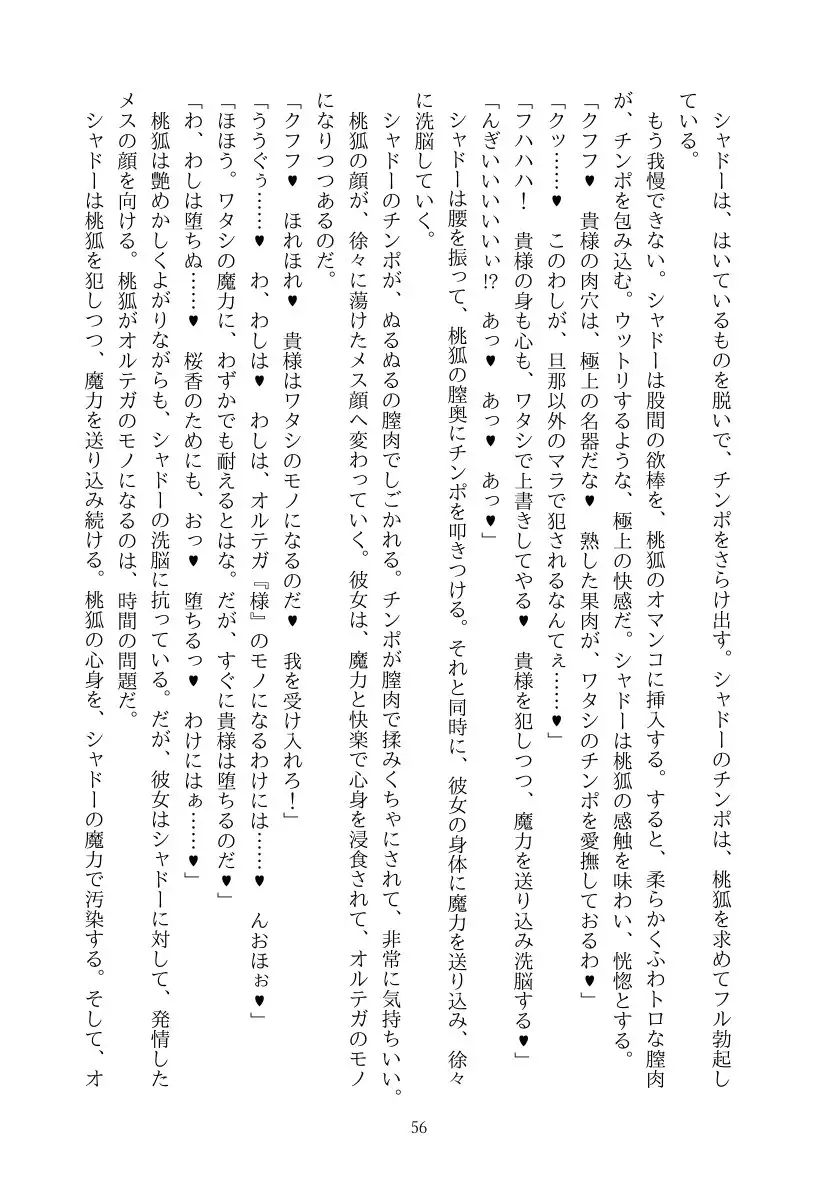 シャドーは、はいているものを脱いで、チンポをさらけ出す。シャドーのチンポは、桃狐を求めてフル勃起し
ている。
もう我慢できない。シャドーは股間の欲棒を、桃狐のオマンコに挿入する。すると、柔らかくふわトロな膣肉
が、チンポを包み込む。ウットリするような、極上の快感だ。シャドーは桃狐の感触を味わい、恍惚とする。
「クフフ♥　貴様の肉穴は、極上の名器だな♥　熟した果肉が、ワタシのチンポを愛撫しておるわ♥」
「クッ……♥　このわしが、旦那以外のマラで犯されるなんてぇ……♥」
「フハハハ！　貴様の身も心も、ワタシで上書きしてやる♥　貴様を犯しつつ、魔力を送り込み洗脳する♥」
「んぎいいいいいぃぃ!?　あっ♥　あっ♥　あっ♥」
シャドーは腰を振って、桃狐の膣奥にチンポを叩きつける。それと同時に、彼女の身体に魔力を送り込み、徐々
に洗脳していく。
シャドーのチンポが、ぬるぬるの膣肉でしごかれる。チンポが膣肉で揉みくちゃにされて、非常に気持ちいい。
桃狐の顔が、徐々に蕩けたメス顔へ変わっていく。彼女は、魔力と快楽で心身を浸食されて、オルテガのモノ
になりつつあるのだ。
「クフフ♥　ほれほれ♥　貴様はワタシのモノになるのだ♥　我を受け入れろ！」
「ううぐぅ……♥　わ、わしは♥　わしは、オルテガ『様』のモノになるわけには……♥　んおほぉ♥」
「ほほう。ワタシの魔力に、わずかでも耐えるとはな。だが、すぐに貴様は堕ちるのだ♥」
「わ、わしは堕ちぬ……♥　桜香のためにも、おっ♥　堕ちるっ♥　わけにはぁ……♥」
桃狐は艶めかしくよがりながらも、シャドーの洗脳に抗っている。だが、彼女はシャドーに対して、発情した
メスの顔を向ける。桃狐がオルテガのモノになるのは、時間の問題だ。
シャドーは桃狐を犯しつつ、魔力を送り込み続ける。桃狐の心身を、シャドーの魔力で汚染する。そして、オ
56